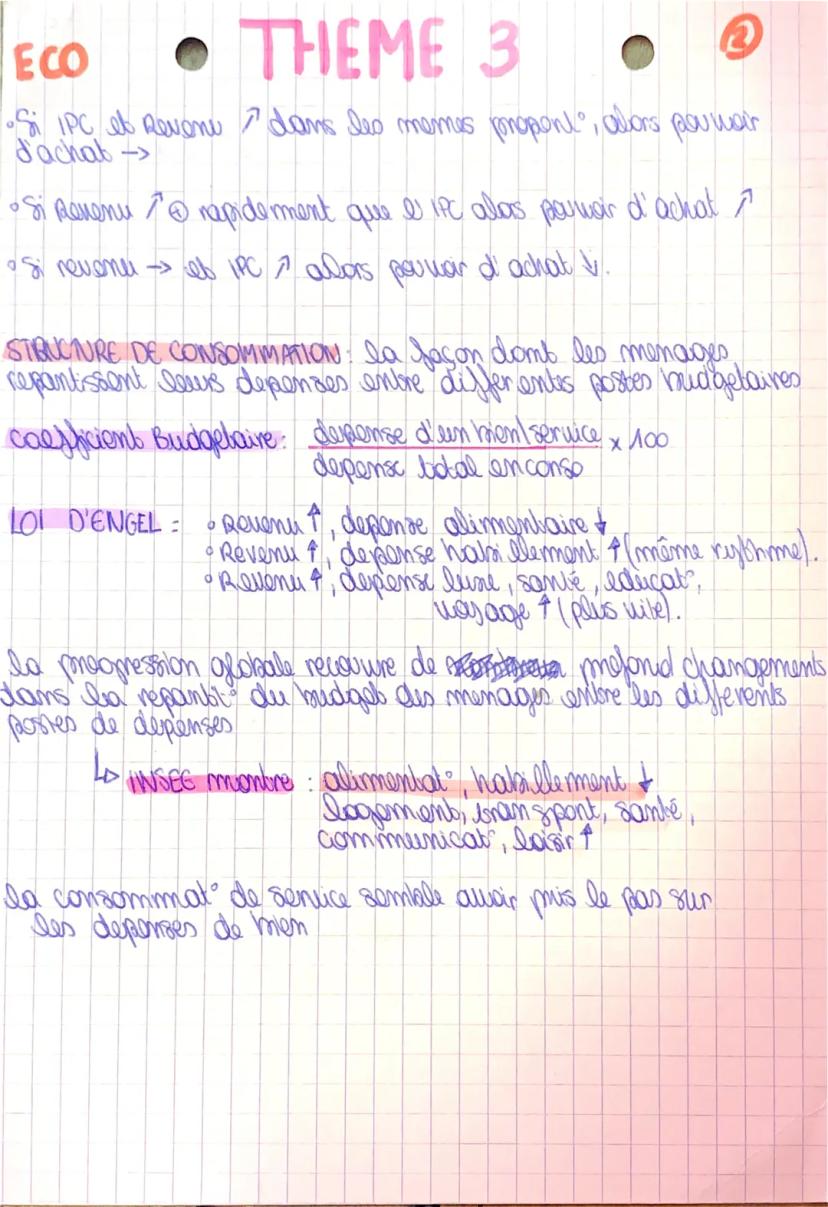 ECO THEME 3 2
• Si IPC et Revenu ↗ dans les memes proport°, alors pouvoir
d'achat →
• Si Revenu ↗ ⊕ rapidement que l'IPC alors pouvoir d'achat ↗
• Si revenu → et IPC ↗ alors pouvoir d'achat ↓.
STRUCTURE DE CONSOMMATION : la façon dont les menages
repartissent leurs depenses entre differentes postes budgetaires
Coefficient Budgetaire : depense d'un bien/service x 100
depense total en conso
LOI D'ENGEL : • Revenu ↑, depense alimentaire ↓
• Revenu ↑, depense habillement ↑ (même rythme).
• Revenu ↑, depense luxe, santé, educat°,
voyage ↑ (plus vite).
la progression globale recouvre de profond changements
dans la repartit° du budget des menages entre les differents
postes de depenses
↳ INSEE montre : alimentat°, habillement ↓
logement, transport, santé,
communicat°, loisir ↑
la consommat° de service semble avoir pris le pas sur
les depenses de bien